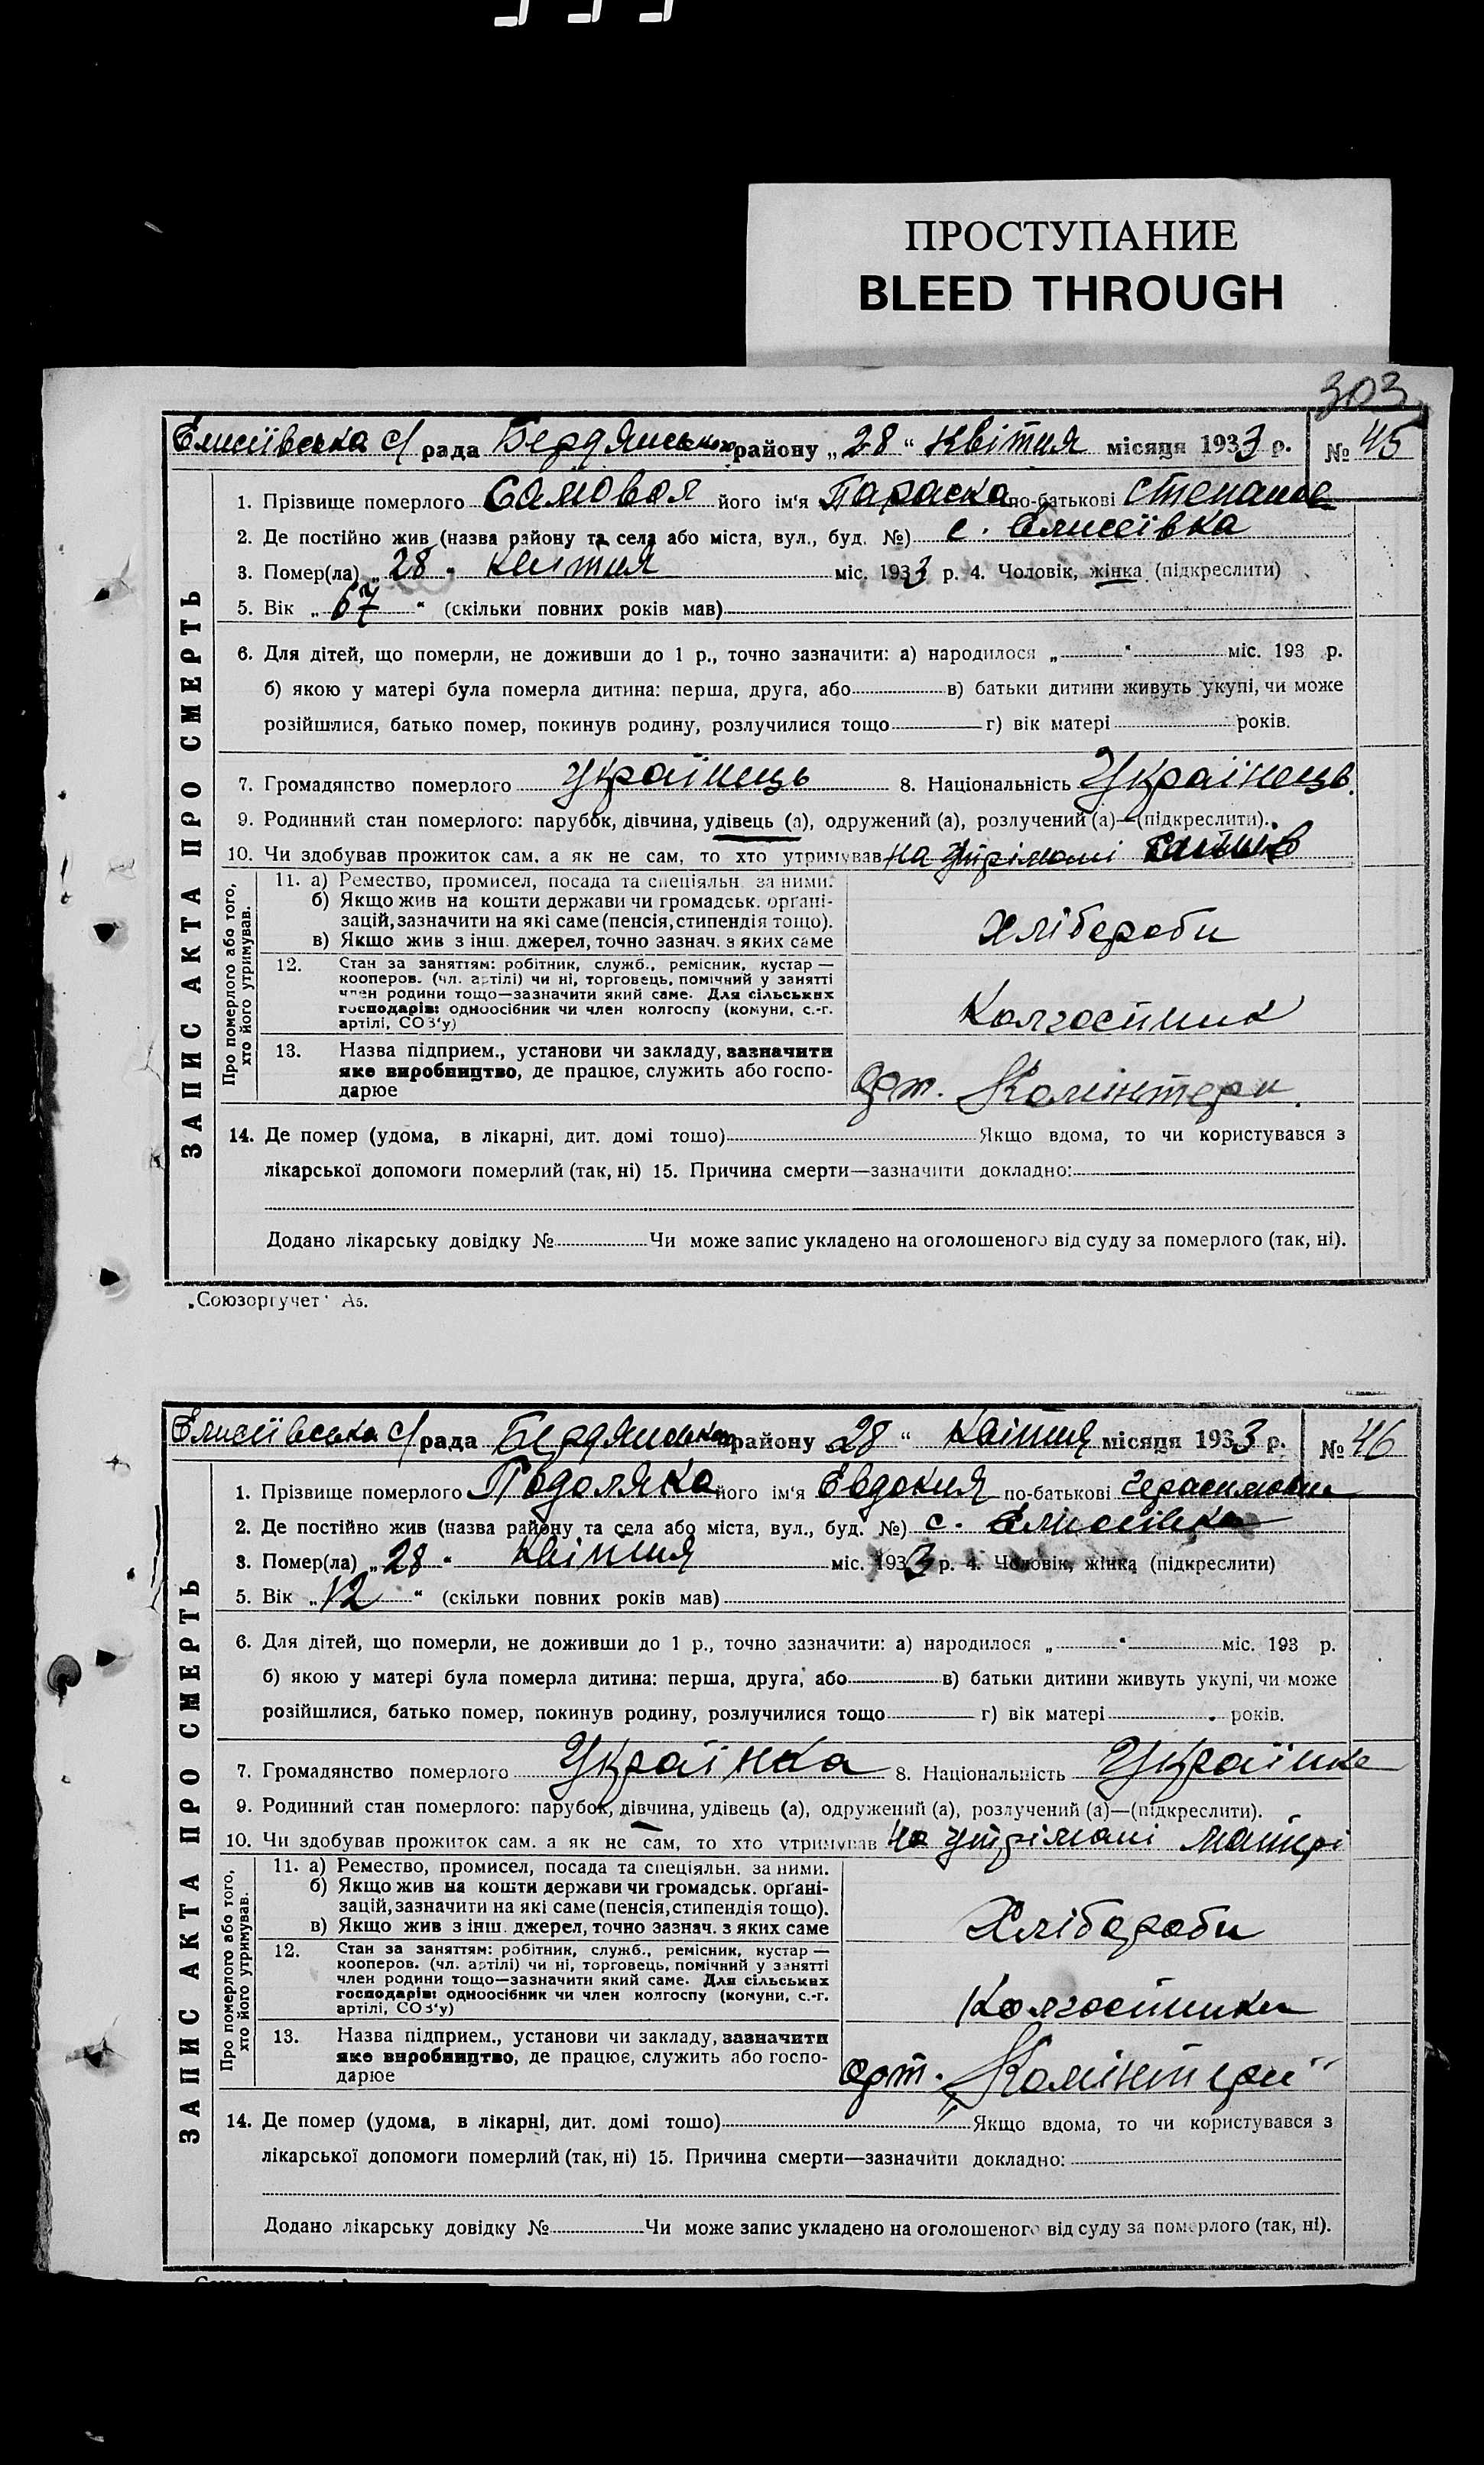 ПРОСТУПАНИЕ
BLEED THROUGH
303
Елисіївська с/ рада Бердянського району „28“ Квітня місяця 1933 р. № 45
1. Прізвище померлого Самовая його ім'я Параска по-батькові Степанов
2. Де постійно жив (назва району та села або міста, вул., буд. №) с. Єлисеївка
3. Помер(ла) „28“ Квітня міс. 1933 р. 4. Чоловік, жінка (підкреслити)
5. Вік „67“ (скільки повних років мав)
6. Для дітей, що померли, не доживши до 1 р., точно зазначити: а) народилося „ “ міс. 193 р.
б) якою у матері була померла дитина: перша, друга, або в) батьки дитини живуть укупі, чи може
розійшлися, батько помер, покинув родину, розлучилися тощо г) вік матері років.
7. Громадянство померлого Українець 8. Національність Українець.
9. Родинний стан померлого: парубок, дівчина, удівець (а), одружений (а), розлучений (а)—(підкреслити).
10. Чи здобував прожиток сам, а як не сам, то хто утримував на утрімані
ЗАПИС АКТА ПРО СМЕРТЬ
Про померлого або того, хто його утримував.
11. а) Ремество, промисел, посада та спеціяльн. за ними.
б) Якщо жив на кошти держави чи громадськ. орґані-
зацій, зазначити на які саме (пенсія, стипендія тощо).
в) Якщо жив з інш. джерел, точно зазнач. з яких саме
Хлібороби
12. Стан за заняттям: робітник, служб., ремісник, кустар —
кооперов. (чл. артілі) чи ні, торговець, помічний у занятті
член родини тощо—зазначити який саме. Для сільських
господарів: одноосібник чи член колгоспу (комуни, с.-г.
артілі, СОЗ'у)
Колгоспник
13. Назва підприєм., установи чи закладу, зазначити
яке виробництво, де працює, служить або госпо-
дарює
Арт. Комінтерн.
14. Де помер (удома, в лікарні, дит. домі тошо) Якщо вдома, то чи користувався з
лікарської допомоги померлий (так, ні) 15. Причина смерти—зазначити докладно:
Додано лікарську довідку № Чи може запис укладено на оголошеного від суду за померлого (так, ні).
„Союзоргучет“ Аз.
Елисіївська с/ рада Бердянського району 28 “ Квітня місяця 1933 р. № 46
1. Прізвище померлого Подоляка його ім'я Евдокия по-батькові Герасимовна
2. Де постійно жив (назва району та села або міста, вул., буд. №) с. Єлисеївка
3. Помер(ла) „28“ Квітня міс. 1933 р. 4. Чоловік, жінка (підкреслити)
5. Вік „12“ (скільки повних років мав)
6. Для дітей, що померли, не доживши до 1 р., точно зазначити: а) народилося „ “ міс. 193 р.
б) якою у матері була померла дитина: перша, друга, або в) батьки дитини живуть укупі, чи може
розійшлися, батько помер, покинув родину, розлучилися тощо г) вік матері років.
7. Громадянство померлого Українка 8. Національність Українка
9. Родинний стан померлого: парубок, дівчина, удівець (а), одружений (а), розлучений (а)—(підкреслити).
10. Чи здобував прожиток сам, а як не сам, то хто утримував на утрімані матері
ЗАПИС АКТА ПРО СМЕРТЬ
Про померлого або того, хто його утримував.
11. а) Ремество, промисел, посада та спеціяльн. за ними.
б) Якщо жив на кошти держави чи громадськ. орґані-
зацій, зазначити на які саме (пенсія, стипендія тощо).
в) Якщо жив з інш. джерел, точно зазнач. з яких саме
Хлібороби
12. Стан за заняттям: робітник, служб., ремісник, кустар —
кооперов. (чл. артілі) чи ні, торговець, помічний у занятті
член родини тощо—зазначити який саме. Для сільських
господарів: одноосібник чи член колгоспу (комуни, с.-г.
артілі, СОЗ'у)
Колгоспники
13. Назва підприєм., установи чи закладу, зазначити
яке виробництво, де працює, служить або госпо-
дарює
арт. „Комінтерн“
14. Де помер (удома, в лікарні, дит. домі тошо) Якщо вдома, то чи користувався з
лікарської допомоги померлий (так, ні) 15. Причина смерти—зазначити докладно:
Додано лікарську довідку № Чи може запис укладено на оголошеного від суду за померлого (так, ні).